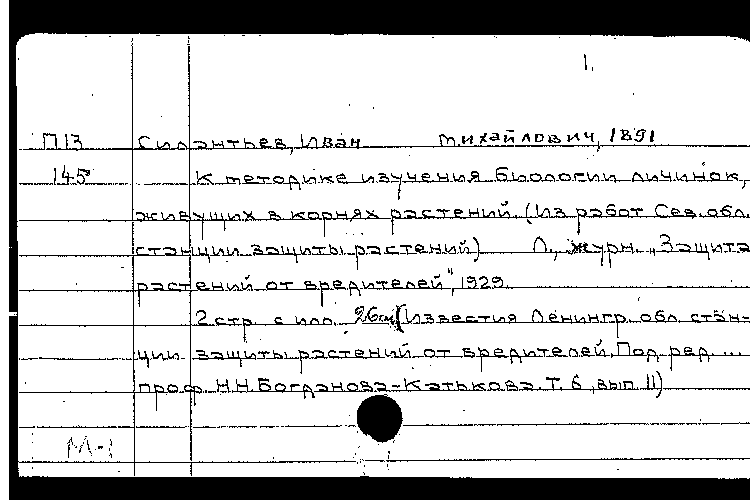 1.
П13 Силантьев, Иван Михайлович, 1891
145 К методике изучения биологии личинок,
живущих в корнях растений. (Из работ Сев. обл.
станции защиты растений) Л., журн. „Защита
растений от вредителей", 1929.
2 стр. с илл. 26 см (Известия Ленингр. обл. стан-
ции защиты растений от вредителей. Под ред. ...
проф. Н.Н. Богданова-Катькова. Т. 6, вып. 11)
М-1